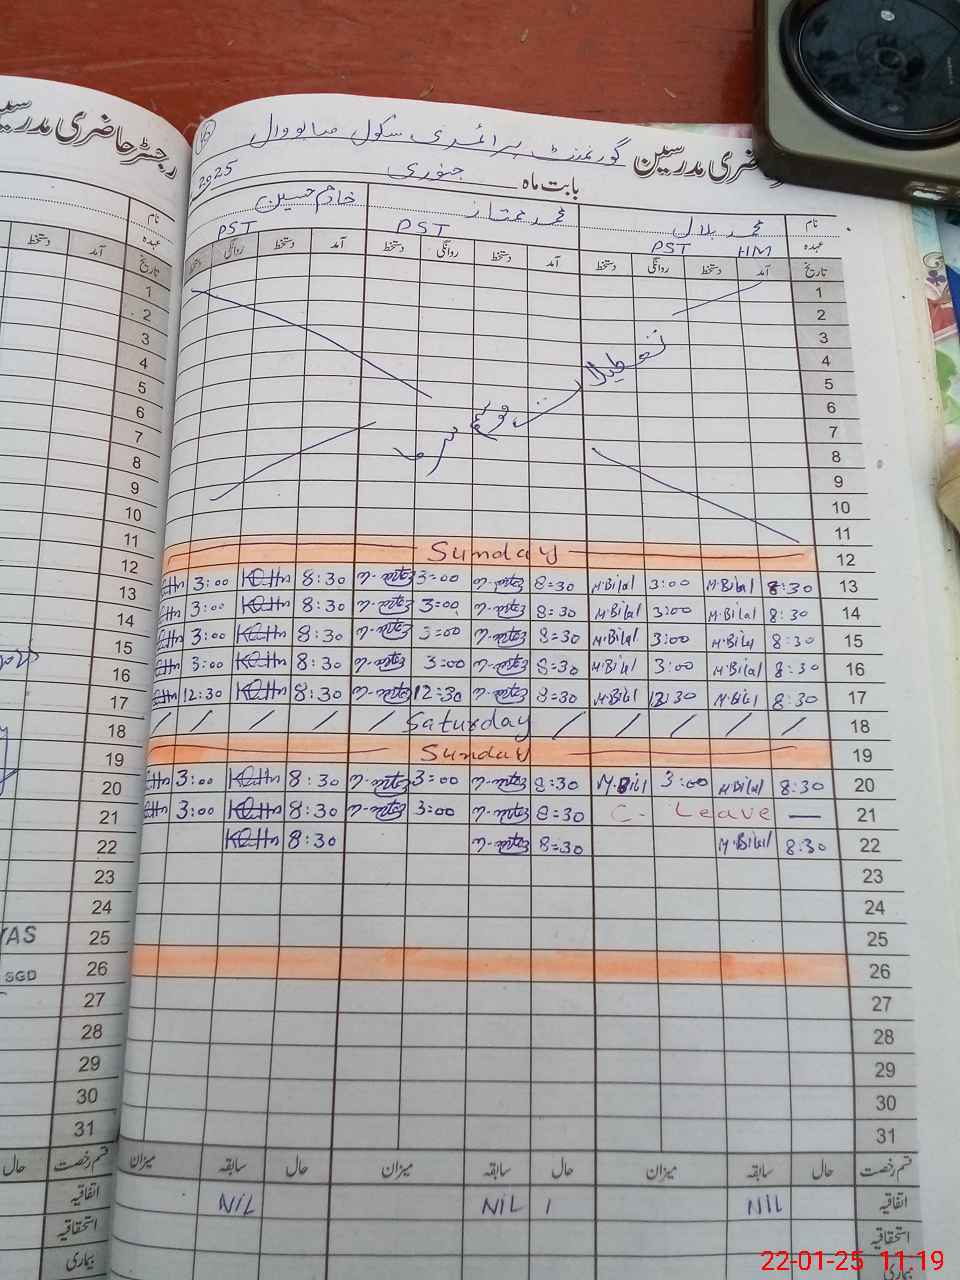 رجسٹر حاضری مدرسین
حاضری مدرسین گورنمنٹ پرائمری سکول
بابت ماہ جنوری 2025
نام محمد بلال محمد ممتاز خادم حسین
عہدہ HM PST PST PST
تاریخ آمد دستخط روانگی دستخط آمد دستخط روانگی دستخط آمد دستخط روانگی دستخط
1
2
3
4
5
6
7
8
9
10
11
تعطیلات موسم سرما
12 Sunday
13 8:30 M.Bilal 3:00 M.Bilal 8=30 3=00 8:30 3:00
14 8:30 M.Bilal 3:00 M.Bilal 8=30 3=00 8:30 3:00
15 8:30 M.Bilal 3:00 M.Bilal 8=30 3=00 8:30 3:00
16 8:30 M.Bilal 3:00 M.Bilal 8=30 3:00 8:30 3:00
17 8:30 M.Bilal 12:30 M.Bilal 8=30 12=30 8:30 12:30
18 / / / / Saturday / / / / /
19 Sunday
20 8:30 M.Bilal 3:00 M.Bilal 8=30 3=00 8:30 3:00
21 C. Leave — 8=30 3=00 8:30 3:00
22 8:30 M.Bilal 8=30 8:30
23
24
25
26
27
28
29
30
31
قسم رخصت حال سابقہ میزان حال سابقہ میزان حال سابقہ میزان
اتفاقیہ NIL 1 NIL NIL
استحقاقیہ
بیماری
نام
عہدہ
تاریخ آمد دستخط
1
2
3
4
5
6
7
8
9
10
11
12
13
14
15
16
17
18
19
20
21
22
23
24
25
26
27
28
29
30
31
SGD
قسم رخصت حال
اتفاقیہ
استحقاقیہ
بیماری
22-01-25 11:19